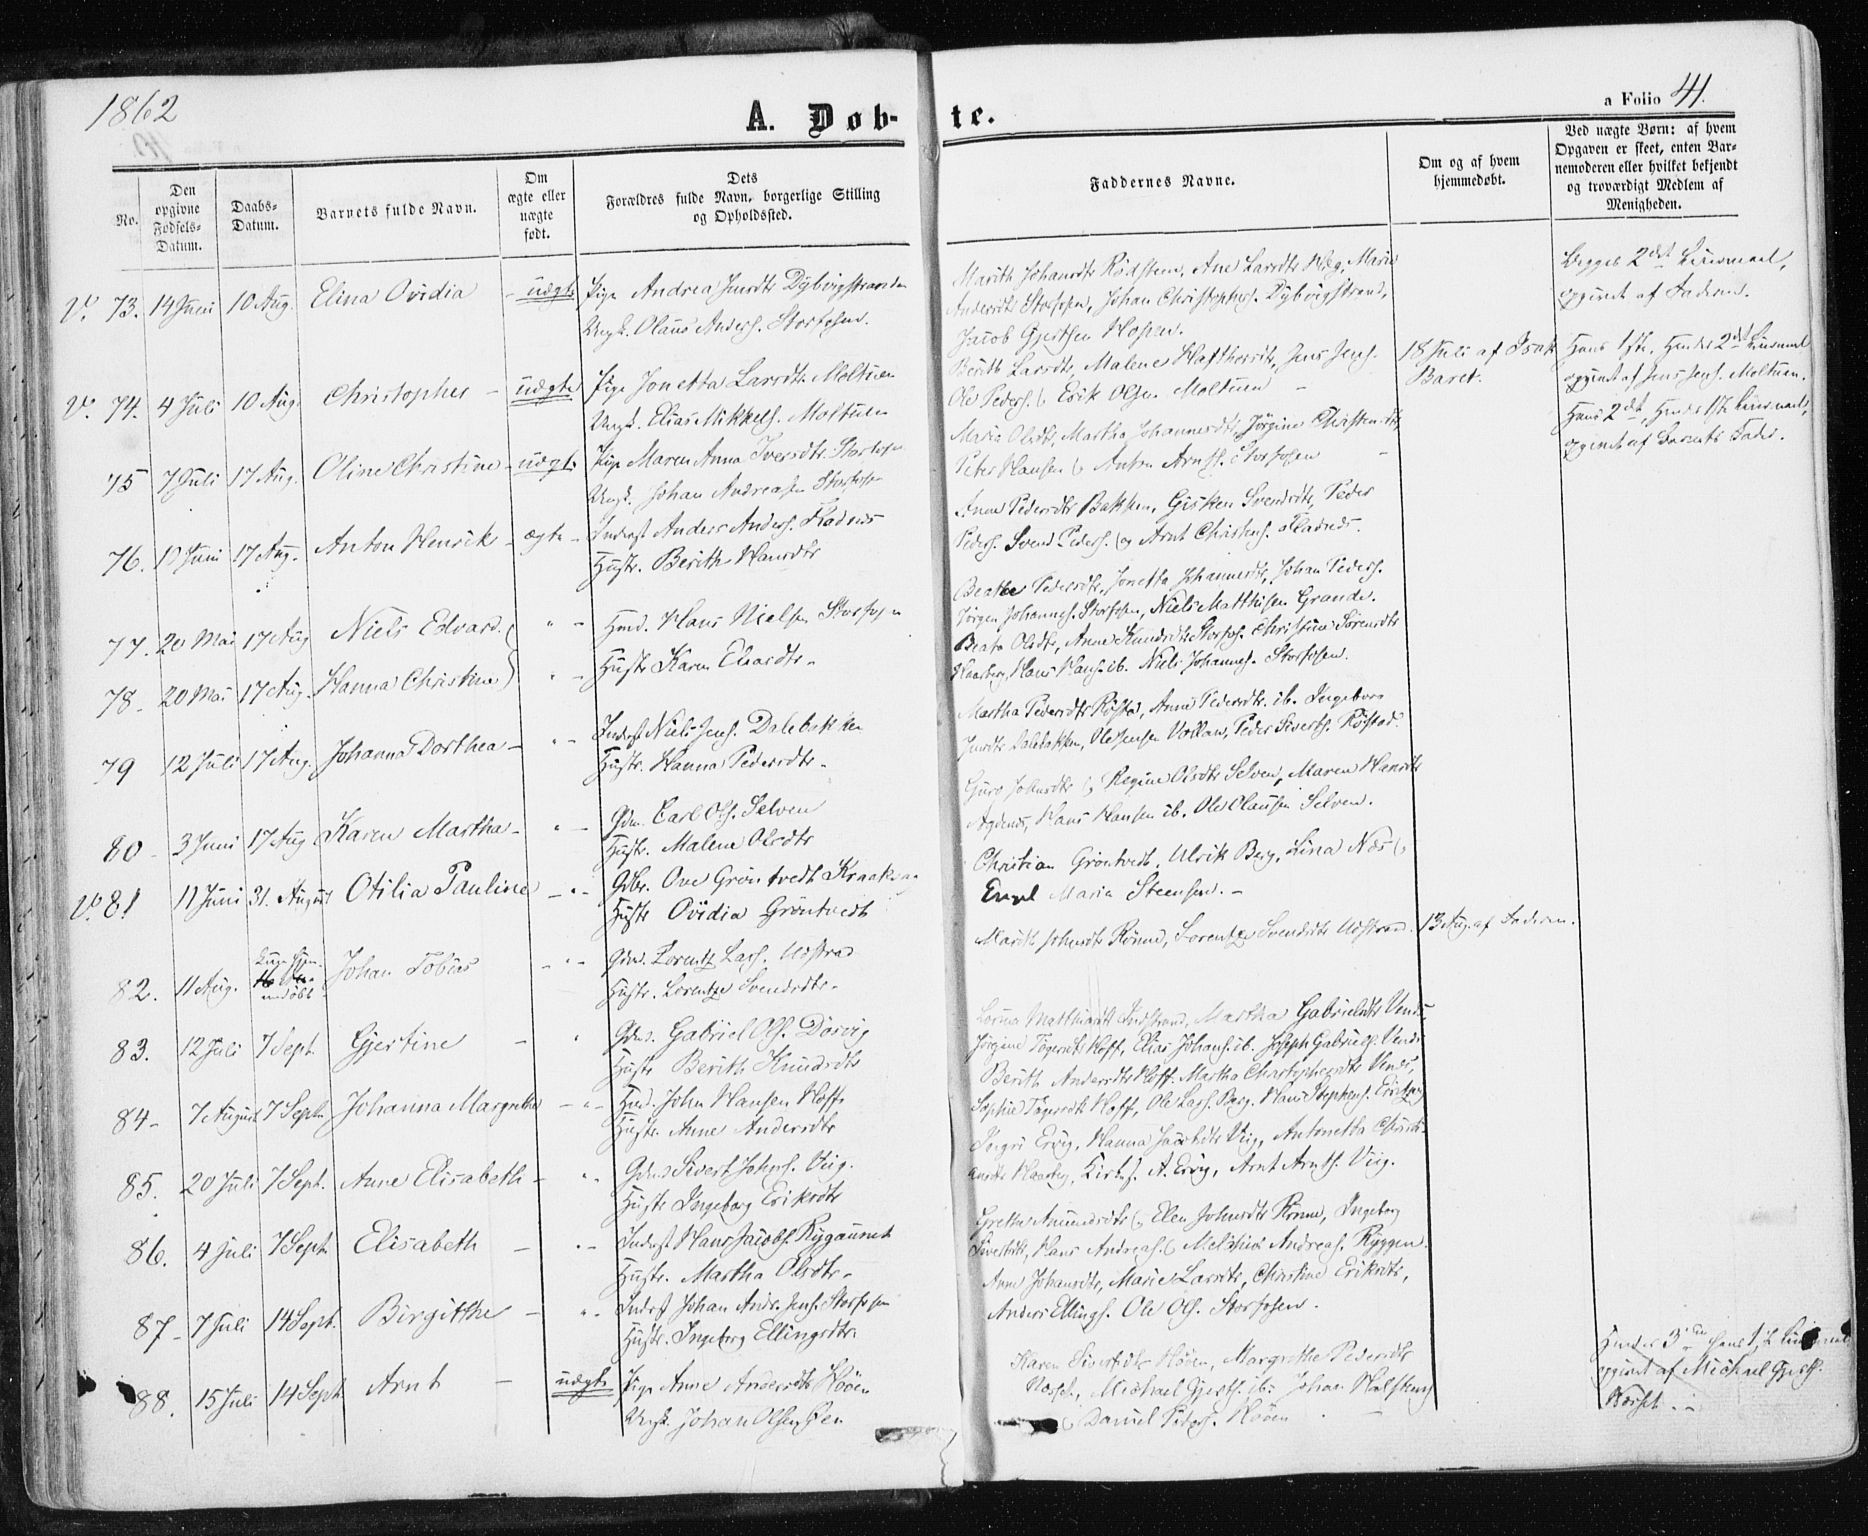 1862
A. Døb-
te.
a Folio 41.
No.
Den
opgivne
Fødsels-
Datum.
Daabs-
Datum.
Barnets fulde Navn.
Om
ægte eller
uægte
født.
Dets
Forældres fulde Navn, borgerlige Stilling
og Opholdssted.
Faddernes Navne.
Om og af hvem
hjemmedøbt.
Ved uægte Børn: af hvem
Opgaven er skeet, enten Bar-
nemoderen eller hvilket bekjendt
og troværdigt Medlem af
Menigheden.
V. 73. 14 Juni 10 Aug. Elina Ovidia - uægte Pige Andrea Jensdtr Dybvigstranden
Ungk. Olaus Anders. Storfosen.
Marith Johansdtr Rødstem, Ane Larsdtr Wæg, Marie
Andersdtr Storfosen, Johan Christophers. Dybvigstrand,
Jacob Gjertsen Hopen.
Begges 2det Leiermaal,
opgivet af Faderen.
V. 74. 4 Juli 10 Aug. Christopher - uægte Pige Jonetta Larsdtr Moltuen
Ungk. Elias Mikkels. Moltuen
Berith Larsdtr, Malene Hafthorsdtr, Jens Jens.
Ole Peders. Erik Olsen Moltuen -
18 Juli af Isak
Baret.
Hans 1ste, Hendes 2det Leiermaal
opgivet af Jens Jens. Moltuen.
75 7 Juli 17 Aug. Oline Christine - uægte Pige Maren Anna Iversdtr Storfosen
Ungk. Johan Andreasen Storfosen
Maria Olsdtr, Martha Johannesdtr, Jørgine Christensdtr,
Peter Hansen & Anton Arnts. Storfosen -
Hans 2det, Hendes 1ste Leiermaal,
opgivet af Barnets Fader.
76. 19 Juni 17 Aug. Anton Henrik - ægte - Inderst Anders Anders. Fladnæs
Hustr. Berith Hansdtr
Anne Pedersdtr Bakken, Gisken Svendsdtr, Peder
Peders. Svend Peders. og Arnt Christens. Fladnæs.
77. 20 Mai 17 Aug Niels Edvard. " - Hmd. Hans Nielsen Storfosen
Beathe Pedersdtr, Jonetta Johannesdtr, Johan Peders.
Jørgen Johannes. Storfosen, Niels Matthisen Grande.
78. 20 Mai 17 Aug. Hanna Christine " - Hustr Karen Eliasdtr.
Beata Olsdtr, Anne Knudsdtr Storfos. Christine Sørensdtr
Haarberg, Hans Hans. ib. Niels Johannes. Storfosen.
79 12 Juli 17 Aug. Johanna Dorthea - " - Inderst Niels Jens. Dalebakken
Hustr. Hanna Pedersdtr.
Martha Pedersdtr Røstad, Anne Pedersdtr. ib. Ingeborg
Jensdtr Dalebakken, Ole Jensen Vollan, Peder Siverts. Røstad.
80 - 3 Juni 17 Aug Karen Martha - " - Gdm. Carl Ols. Selven
Hustr. Malene Olsdtr
Guro Johnsdtr & Regine Olsdtr Selven, Maren Hansdtr
Agdenæs, Hans Hansen ib. Ole Olausen Selven.
V. 81 11 Juni 31. August Otilia Pauline - " - Gdbr. Ove Gröntvedt Kraakvaag
Hustr Ovidia Gröntvedt
Christian Gröntvedt, Ulrik Berg, Lina Næs &
Engel Maria Steensen. -
82. 11 Aug. Johan Tobias - " - Gdmd. Lorentz Lars. Udstrad
Hustr. Lorentze Svendsdtr.
Marith Johnsdtr Rönne, Lorentze Svendsdtr Udstrad. 13 Aug. af Faderen.
83. 12 Juli 7 Sept. Gjertine - " Gdmd. Gabriel Ols. Dösvig
Hustr Berith Knudsdtr
Lorina Matthiasdtr Indstrand, Martha Gabrielsdtr Vendes,
Jørgine Tögersdtr Hoff, Elias Johans. ib. Joseph Gabriels. Vendes
84 - 7 August 7 Sept. Johanna Margrethe - " - Hmd. John Hansen Hoff
Hustr. Anne Andersdtr
Berith Andersdtr Hoff. Martha Christophersdtr Vendes,
Sophie Tögersdtr Hoff, Ole Lars. Berg. Hans Stephens. Ervig
85. 20 Juli 7 Sept. Anne Elisabeth - " Gdmd Sivert Johns. Viig.
Hustr Ingeborg Eriksdtr
Ingri Ervig, Hanna Jacobsdtr Viig, Antonetta Christi-
ansdtr Haarberg, Kirkes. A. Ervig, Arnt Arnts. Viig.
86. 4 Juli 7 Sept. Elisabeth - " - Inderst Hans Jacobs. Ryggaunet
Hustr. Martha Olsdtr.
Grethe Amundsdtr & Elen Johnsdtr Rönne, Ingeborg
Sivertsdtr, Hans Andreas. & Melchior Andreas. Ryggen.
87 - 7 Juli 14 Sept. Birgitthe - " - Inderst Johan Andr. Jens. Storfosen
Hustr. Ingeborg Ellingsdtr.
Anne Johansdtr, Marie Larsdtr, Christine Eriksdtr,
Anders Ellings. Ole Ols. Storfosen.
88. 15 Juli 14 Sept Arnt - uægte Pige Anne Andersdtr Høien
Ungk. Johan Olsen
Karen Sivertsdtr Høien, Margrethe Pedersdtr
Næsset, Michael Gjerts. ib. Johan Halstens.
& Daniel Peters. Høien -
Hendes 3die, Hans 1ste Leiermaal
opgivet af Michael Gjerts.
Næsset.